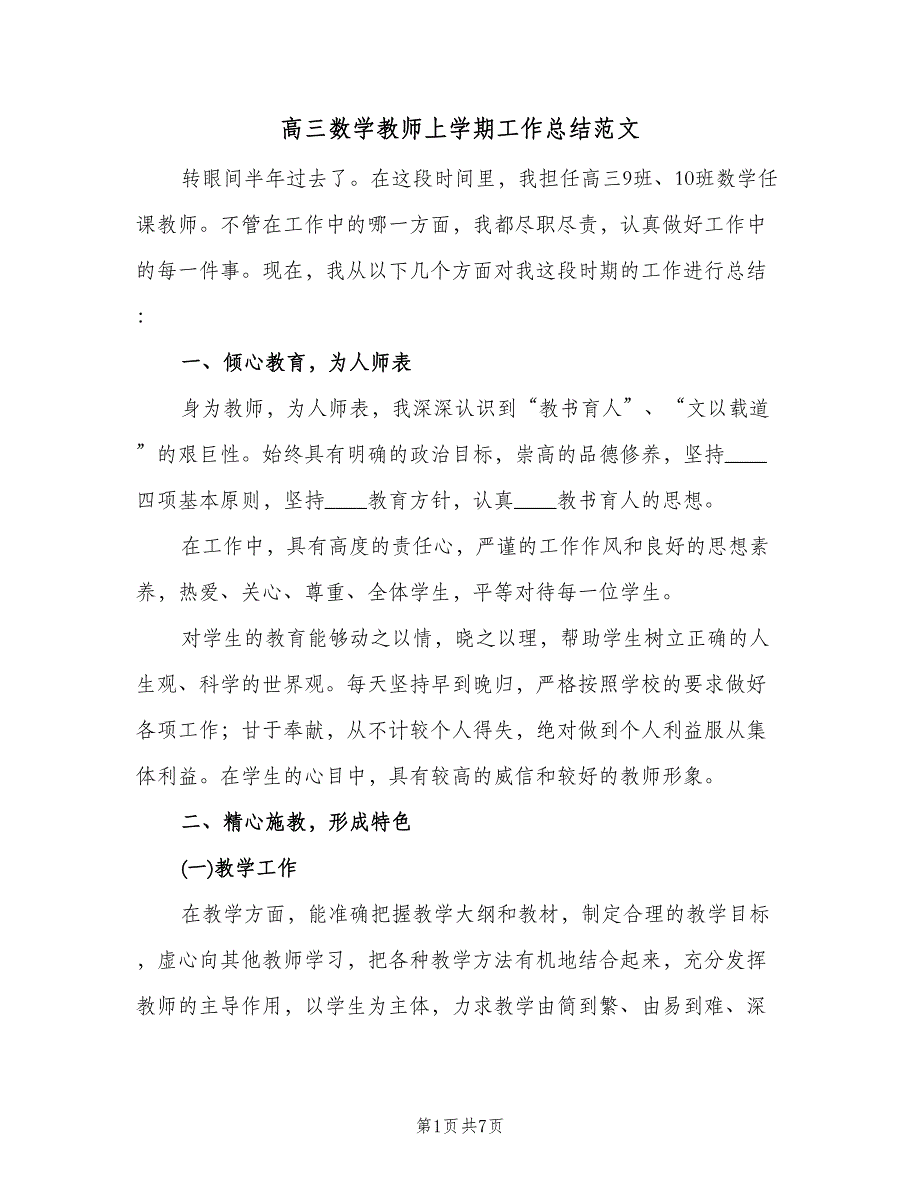 高三数学教师上学期工作总结范文
转眼间半年过去了。在这段时间里，我担任高三9班、10班数学任
课教师。不管在工作中的哪一方面，我都尽职尽责，认真做好工作中
的每一件事。现在，我从以下几个方面对我这段时期的工作进行总结
：
一、倾心教育，为人师表
身为教师，为人师表，我深深认识到“教书育人”、“文以载道
”的艰巨性。始终具有明确的政治目标，崇高的品德修养，坚持____
四项基本原则，坚持____教育方针，认真____教书育人的思想。
在工作中，具有高度的责任心，严谨的工作作风和良好的思想素
养，热爱、关心、尊重、全体学生，平等对待每一位学生。
对学生的教育能够动之以情，晓之以理，帮助学生树立正确的人
生观、科学的世界观。每天坚持早到晚归，严格按照学校的要求做好
各项工作；甘于奉献，从不计较个人得失，绝对做到个人利益服从集
体利益。在学生的心目中，具有较高的威信和较好的教师形象。
二、精心施教，形成特色
(一)教学工作
在教学方面，能准确把握教学大纲和教材，制定合理的教学目标
，虚心向其他教师学习，把各种教学方法有机地结合起来，充分发挥
教师的主导作用，以学生为主体，力求教学由简到繁、由易到难、深
第1页共7页